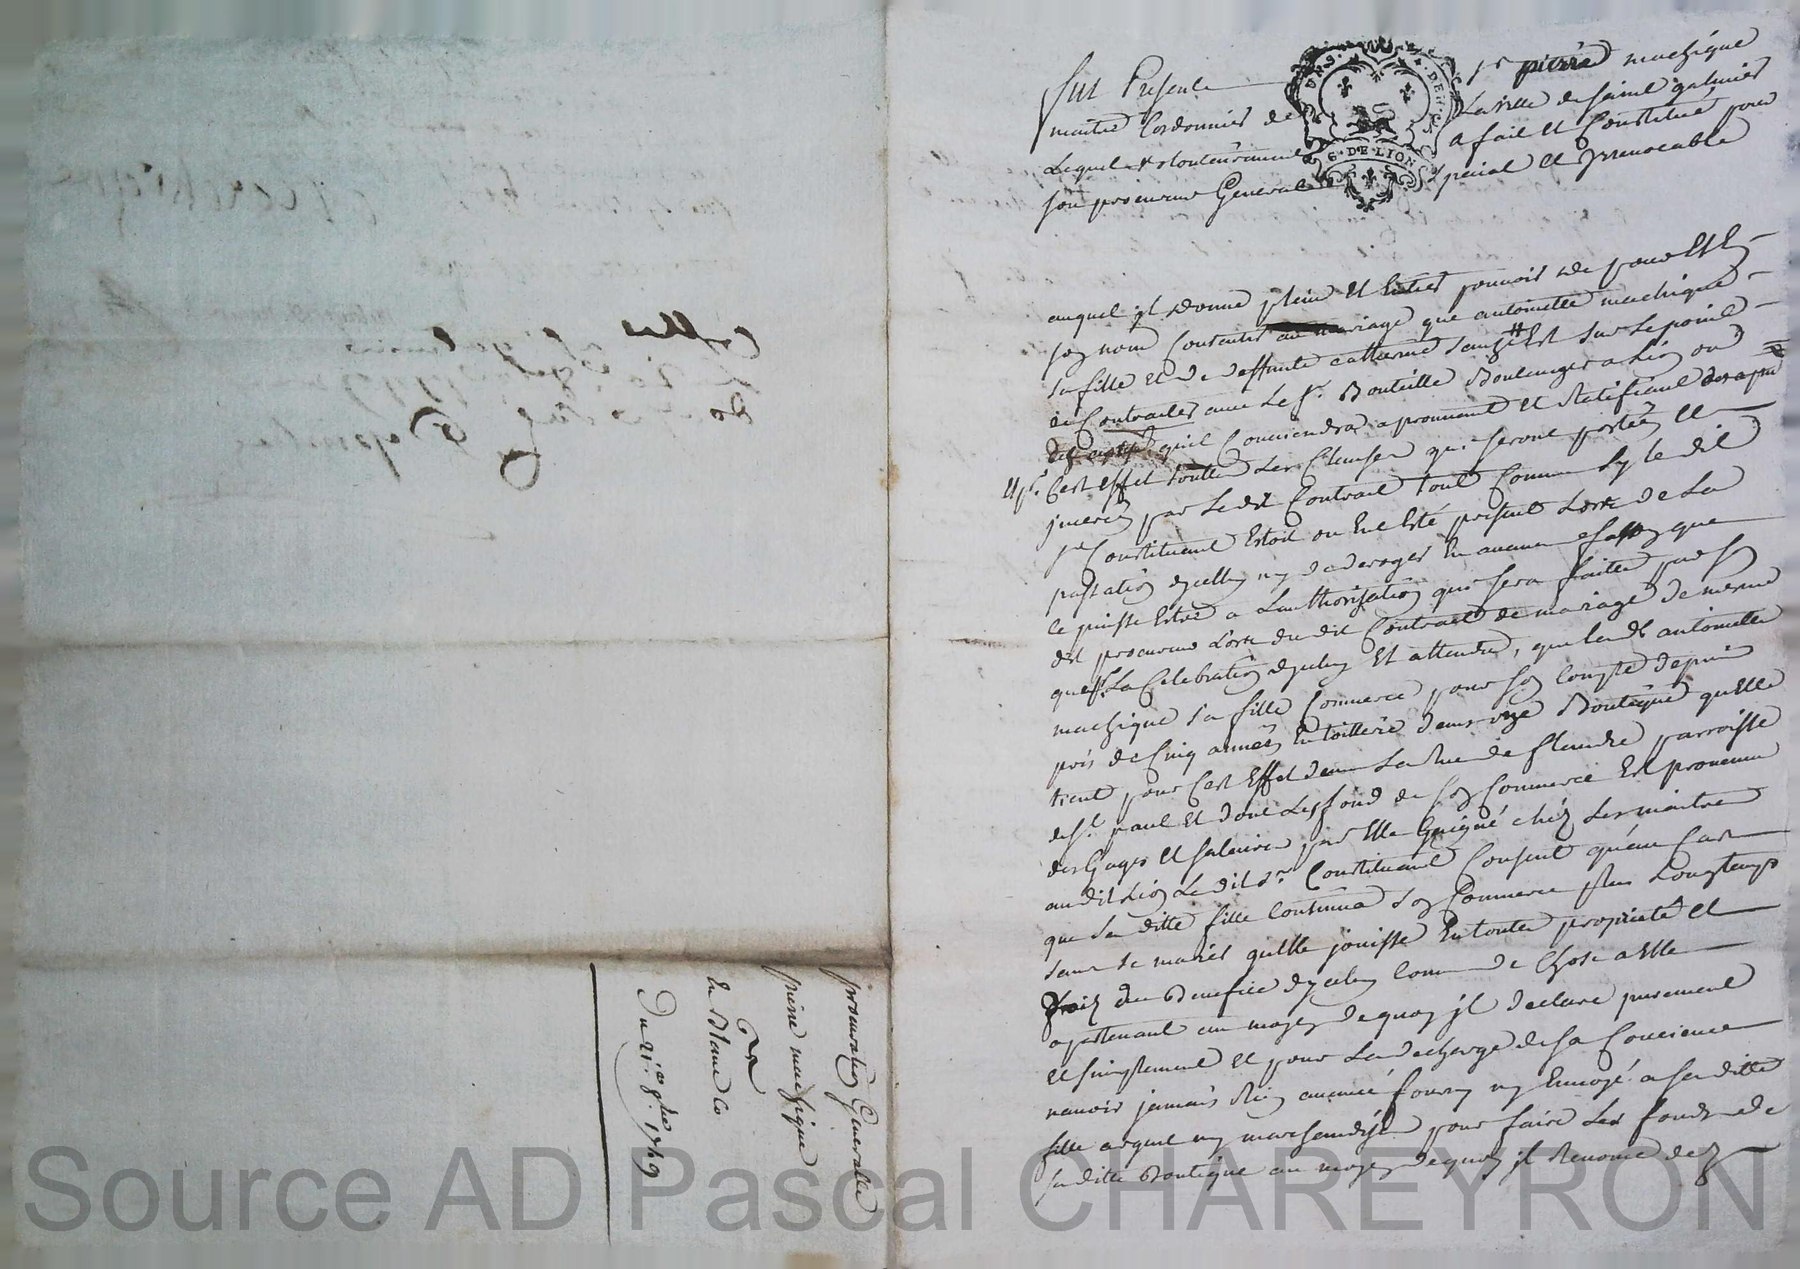 procuration Generalle
pierre machique
En Blanc
Du 21e 8bre 1749
G. DE LION
fut Present sr pierre machique
maitre Cordonnier de La ville de saint galmier
Lequel volontairement a fait et Constitué pour
son procureur General special et Irrevocable
auquel il donne plein et Entier pouvoir de pour et En
son nom Consentir au mariage que antoinette machique
sa fille et de deffunte catherine Est sur le point
de Contracter avec Le sr. Bouteille Boulanger a Lion ou
quil Conviendra aprouvant et Ratifiant
Cest effet touttes Les Clauses qui seront portées et
inserés par Ledit Contrait tout Comme sy le dit
sr Constituant Estoit ou Eut Esté present Lors de La
passation dycelluy ny deroger En aucunne fasson que
ce puisse Estre a Lauthorisation qui sera faitte par son
dit procureur Lors du dit Contrait de mariage de meme
que La Celebration dyceluy Et attendu, que laditte antoinette
machique sa fille Commerce pour son Compte depuis
près de Cinq années En toillerie dans une Boutique quelle
tient pour Cest Effet dans La Rue de flandre parroisse
de st. paul et dont Les fond de son Commerce Est provenu
des Gages et salaires par Elle Gaigné chés Les maitres
audit Lion Ledit sr. Constituant Consent quen Cas
que sa ditte fille Continue son Commerce plus Longtemps
sans se marier quelle jouisse En toutte proprieté et
du Benefice dyceluy Comme de Chose a Elle
apartenant au moyen de quoy il declare purement
et simplement et pour La decharge de sa Concience
navoir jamais Rien avancé fourny ny Envoyé a sa ditte
fille argent ny marchandise pour faire Les fonds de
sa ditte Boutique au moyen de quoy il Renonce dez
Source AD Pascal CHAREYRON